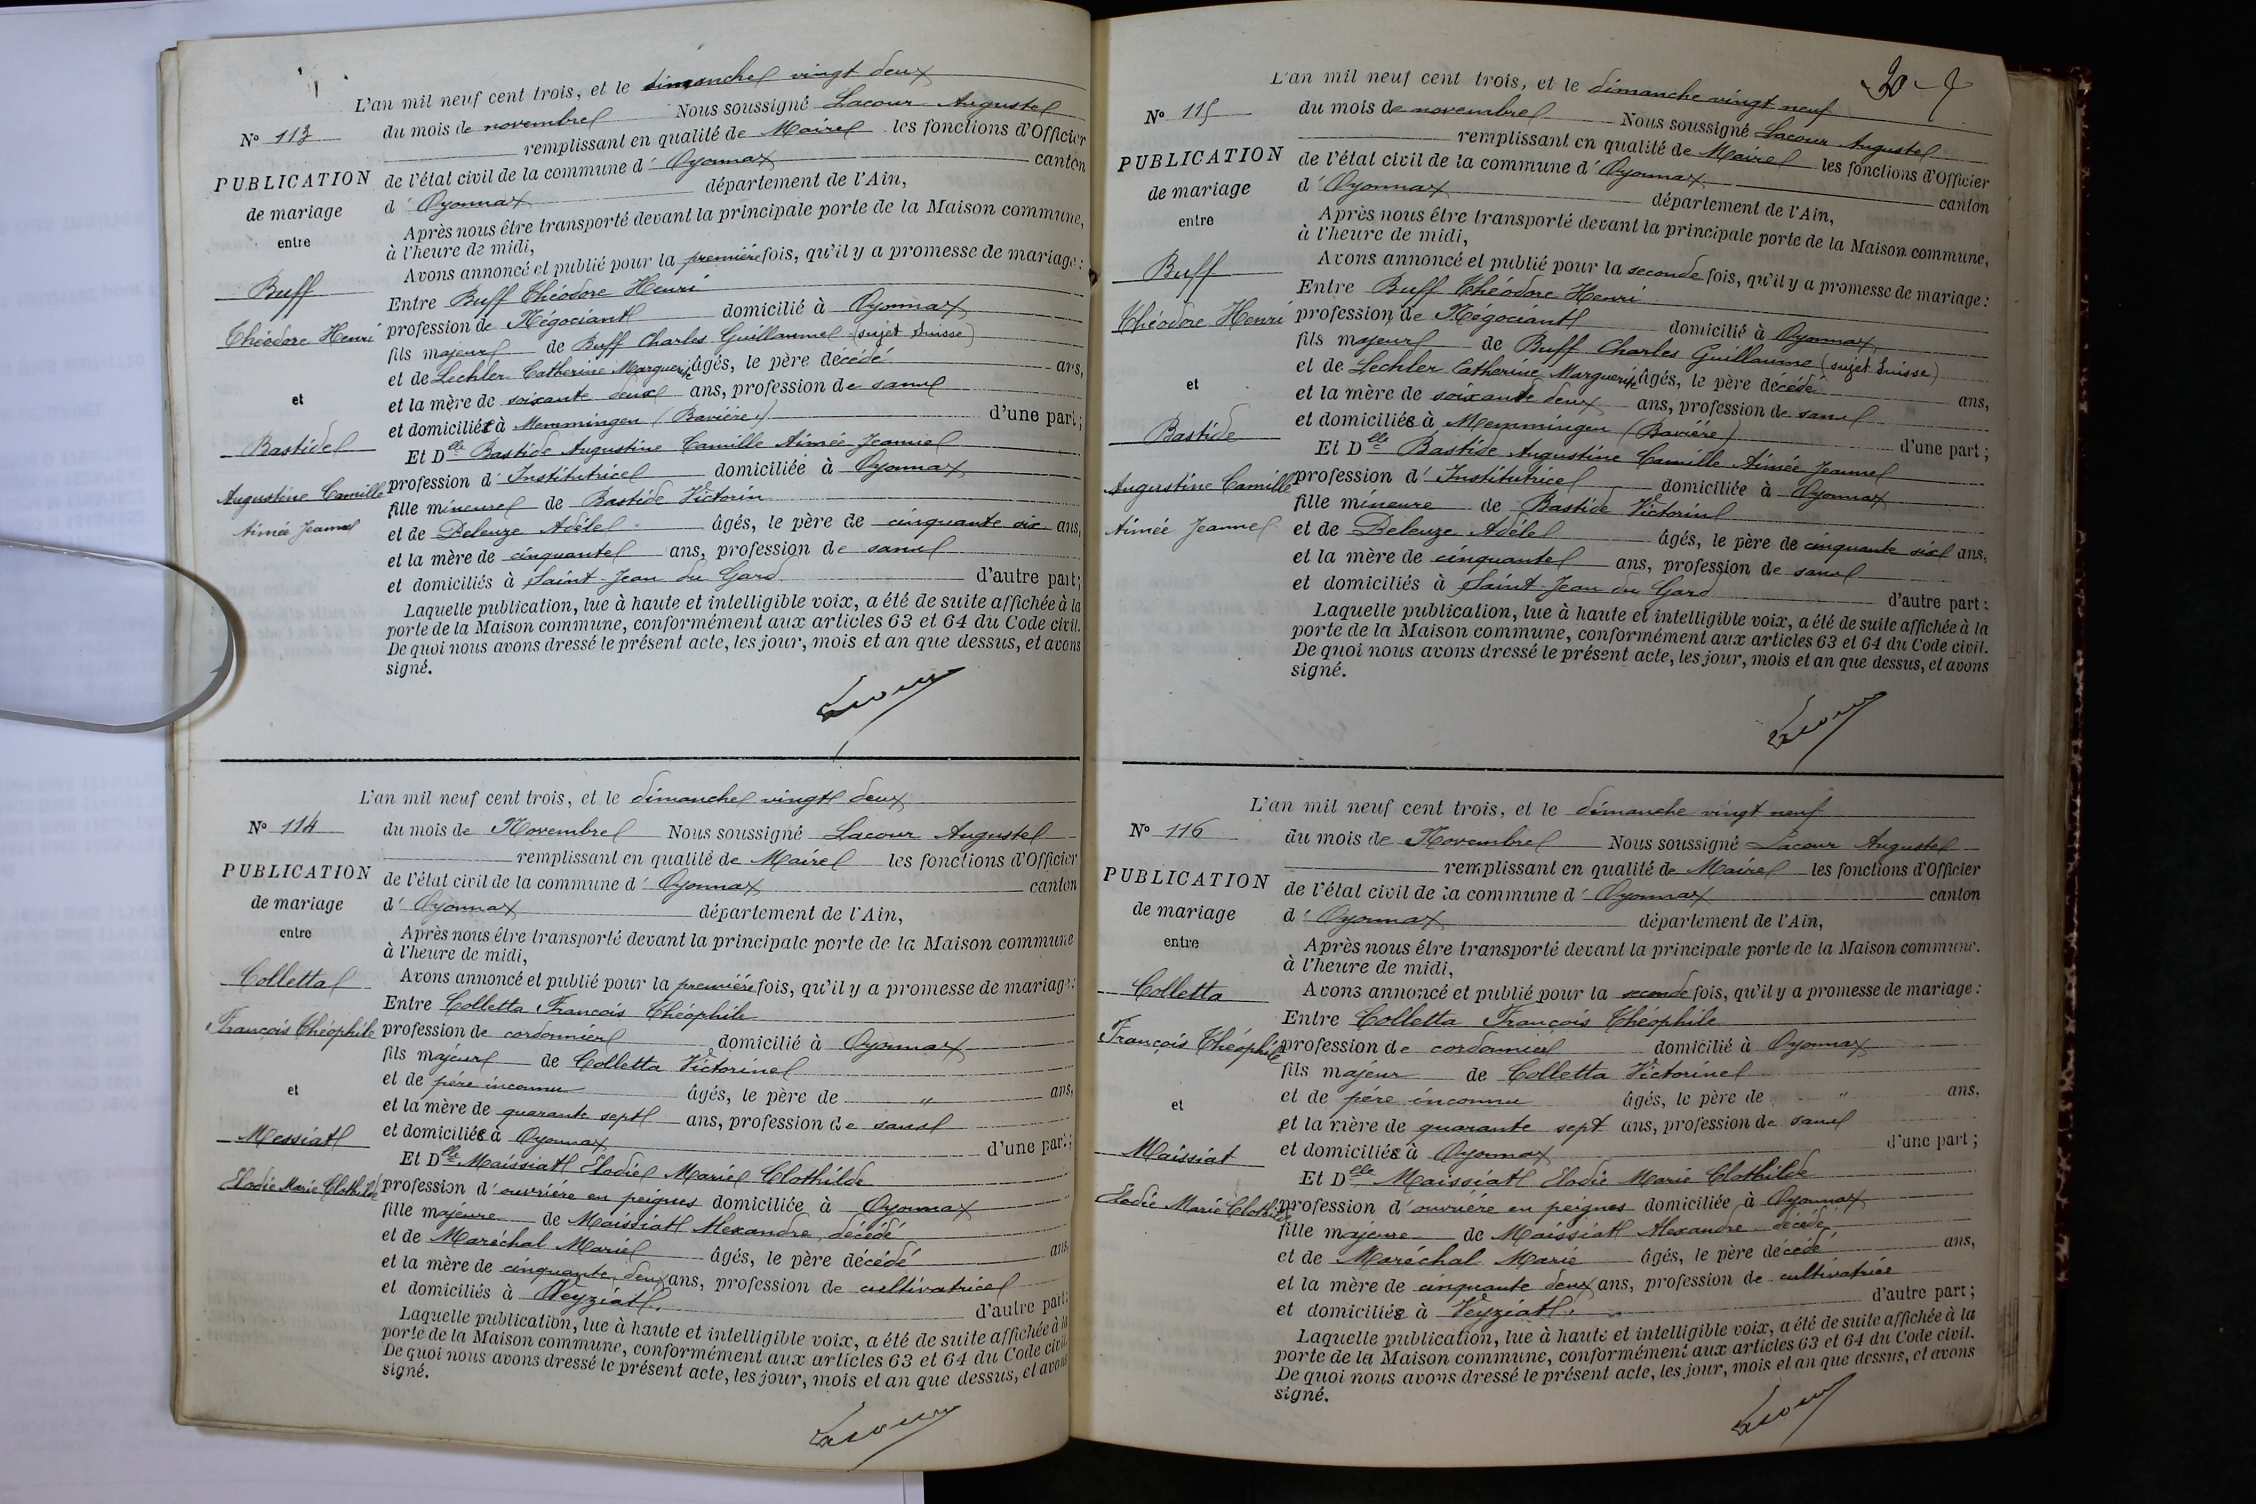 L'an mil neuf cent trois, et le dimanche vingt deux
N° 113 du mois de novembre Nous soussigné Lacour Auguste
remplissant en qualité de Maire les fonctions d'Officier
PUBLICATION de l'état civil de la commune d' Oyonnax canton
d' Oyonnax département de l'Ain,
de mariage
entre
Après nous être transporté devant la principale porte de la Maison commune,
à l'heure de midi,
Avons annoncé et publié pour la première fois, qu'il y a promesse de mariage :
Buff
Entre Buff Théodore Henri
Théodore Henri
profession de Négociant domicilié à Oyonnax
fils majeur de Buff Charles Guillaume (sujet Suisse)
et de Lechler Catherine Marguerite âgés, le père décédé ans,
et
et la mère de soixante deux ans, profession de sans
et domiciliée à Memmingen (Bavière) d'une part ;
Bastide
Et Dlle Bastide Augustine Camille Aimée Jeanne
Augustine Camille
profession d' Institutrice domiciliée à Oyonnax
Aimée Jeanne
fille mineure de Bastide Victorin
et de Deleuze Adèle âgés, le père de cinquante six ans,
et la mère de cinquante ans, profession de sans
et domiciliés à Saint Jean du Gard d'autre part ;
Laquelle publication, lue à haute et intelligible voix, a été de suite affichée à la
porte de la Maison commune, conformément aux articles 63 et 64 du Code civil.
De quoi nous avons dressé le présent acte, les jour, mois et an que dessus, et avons
signé.
Lacour
L'an mil neuf cent trois, et le dimanche vingt deux
N° 114 du mois de Novembre Nous soussigné Lacour Auguste
remplissant en qualité de Maire les fonctions d'Officier
PUBLICATION de l'état civil de la commune d' Oyonnax canton
de mariage d' Oyonnax département de l'Ain,
entre
Après nous être transporté devant la principale porte de la Maison commune
à l'heure de midi,
Colletta
Avons annoncé et publié pour la première fois, qu'il y a promesse de mariage :
Entre Colletta François Théophile
François Théophile
profession de cordonnier domicilié à Oyonnax
fils majeur de Colletta Victorine
et de père inconnu âgés, le père de " ans,
et
et la mère de quarante sept ans, profession de sans
et domiciliée à Oyonnax d'une part ;
Messiat
Et Dlle Maissiat Elodie Marie Clothilde
Elodie Marie Clothilde
profession d' ouvrière en peignes domiciliée à Oyonnax
fille majeure de Maissiat Alexandre, décédé
et de Maréchal Marie âgés, le père décédé ans,
et la mère de cinquante deux ans, profession de cultivatrice
et domiciliés à Veyziat. d'autre part ;
Laquelle publication, lue à haute et intelligible voix, a été de suite affichée à la
porte de la Maison commune, conformément aux articles 63 et 64 du Code civil.
De quoi nous avons dressé le présent acte, les jour, mois et an que dessus, et avons
signé.
Lacour
30
L'an mil neuf cent trois, et le dimanche vingt neuf
N° 115 du mois de novembre Nous soussigné Lacour Auguste
remplissant en qualité de Maire les fonctions d'Officier
PUBLICATION de l'état civil de la commune d' Oyonnax canton
de mariage d' Oyonnax département de l'Ain,
entre
Après nous être transporté devant la principale porte de la Maison commune,
à l'heure de midi,
Buff
Avons annoncé et publié pour la seconde fois, qu'il y a promesse de mariage :
Entre Buff Théodore Henri
Théodore Henri
profession de Négociant domicilié à Oyonnax
fils majeur de Buff Charles Guillaume (sujet Suisse)
et de Lechler Catherine Marguerite âgés, le père décédé ans,
et
et la mère de soixante deux ans, profession de sans
et domiciliée à Memmingen (Bavière) d'une part ;
Bastide
Et Dlle Bastide Augustine Camille Aimée Jeanne
Augustine Camille
profession d' Institutrice domiciliée à Oyonnax
Aimée Jeanne
fille mineure de Bastide Victorin
et de Deleuze Adèle âgés, le père de cinquante six ans,
et la mère de cinquante ans, profession de sans
et domiciliés à Saint Jean du Gard d'autre part ;
Laquelle publication, lue à haute et intelligible voix, a été de suite affichée à la
porte de la Maison commune, conformément aux articles 63 et 64 du Code civil.
De quoi nous avons dressé le présent acte, les jour, mois et an que dessus, et avons
signé.
Lacour
L'an mil neuf cent trois, et le dimanche vingt neuf
N° 116 du mois de Novembre Nous soussigné Lacour Auguste
remplissant en qualité de Maire les fonctions d'Officier
PUBLICATION de l'état civil de la commune d' Oyonnax canton
de mariage d' Oyonnax département de l'Ain,
entre
Après nous être transporté devant la principale porte de la Maison commune.
à l'heure de midi,
Colletta
Avons annoncé et publié pour la seconde fois, qu'il y a promesse de mariage :
Entre Colletta François Théophile
François Théophile
profession de cordonnier domicilié à Oyonnax
fils majeur de Colletta Victorine
et de père inconnu âgés, le père de " ans,
et
et la mère de quarante sept ans, profession de sans
et domiciliée à Oyonnax d'une part ;
Maissiat
Et Dlle Maissiat Elodie Marie Clothilde
Elodie Marie Clothilde
profession d' ouvrière en peignes domiciliée à Oyonnax
fille majeure de Maissiat Alexandre décédé
et de Maréchal Marie âgés, le père décédé ans,
et la mère de cinquante deux ans, profession de cultivatrice
et domiciliée à Veyziat. d'autre part ;
Laquelle publication, lue à haute et intelligible voix, a été de suite affichée à la
porte de la Maison commune, conformément aux articles 63 et 64 du Code civil.
De quoi nous avons dressé le présent acte, les jour, mois et an que dessus, et avons
signé.
Lacour